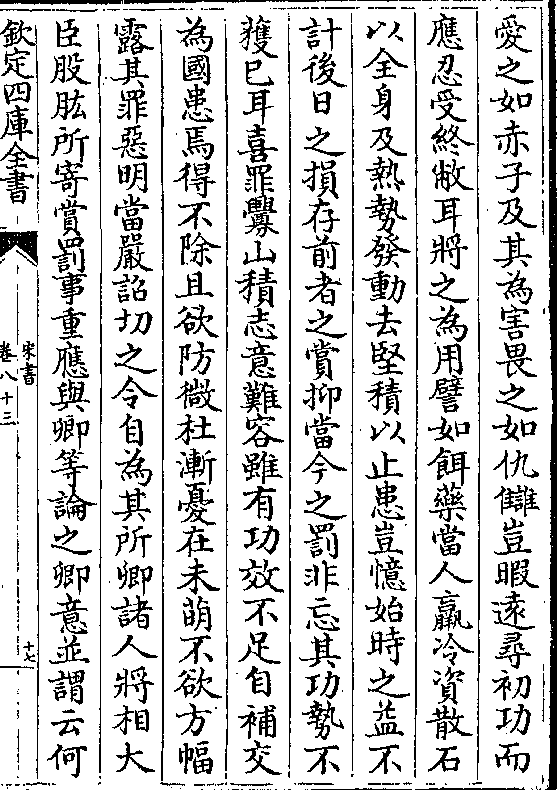 愛之如赤子及其為害畏之如仇讎豈暇遠尋初功而
應忍受終敝耳將之為用譬如餌藥當人羸冷資散石
以全身及熱勢發動去堅積以止患豈憶始時之益不
計後日之損存前者之賞抑當今之罰非忘其功勢不
獲已耳喜罪釁山積志意難容雖有功效不足自補交
為國患焉得不除且欲防微杜漸憂在未萌不欲方幅
露其罪惡明當嚴詔切之令自為其所卿諸人將相大
臣股肱所寄賞罰事重應與卿等論之卿意並謂云何
欽定四庫全書
宋書
卷八十三
十七